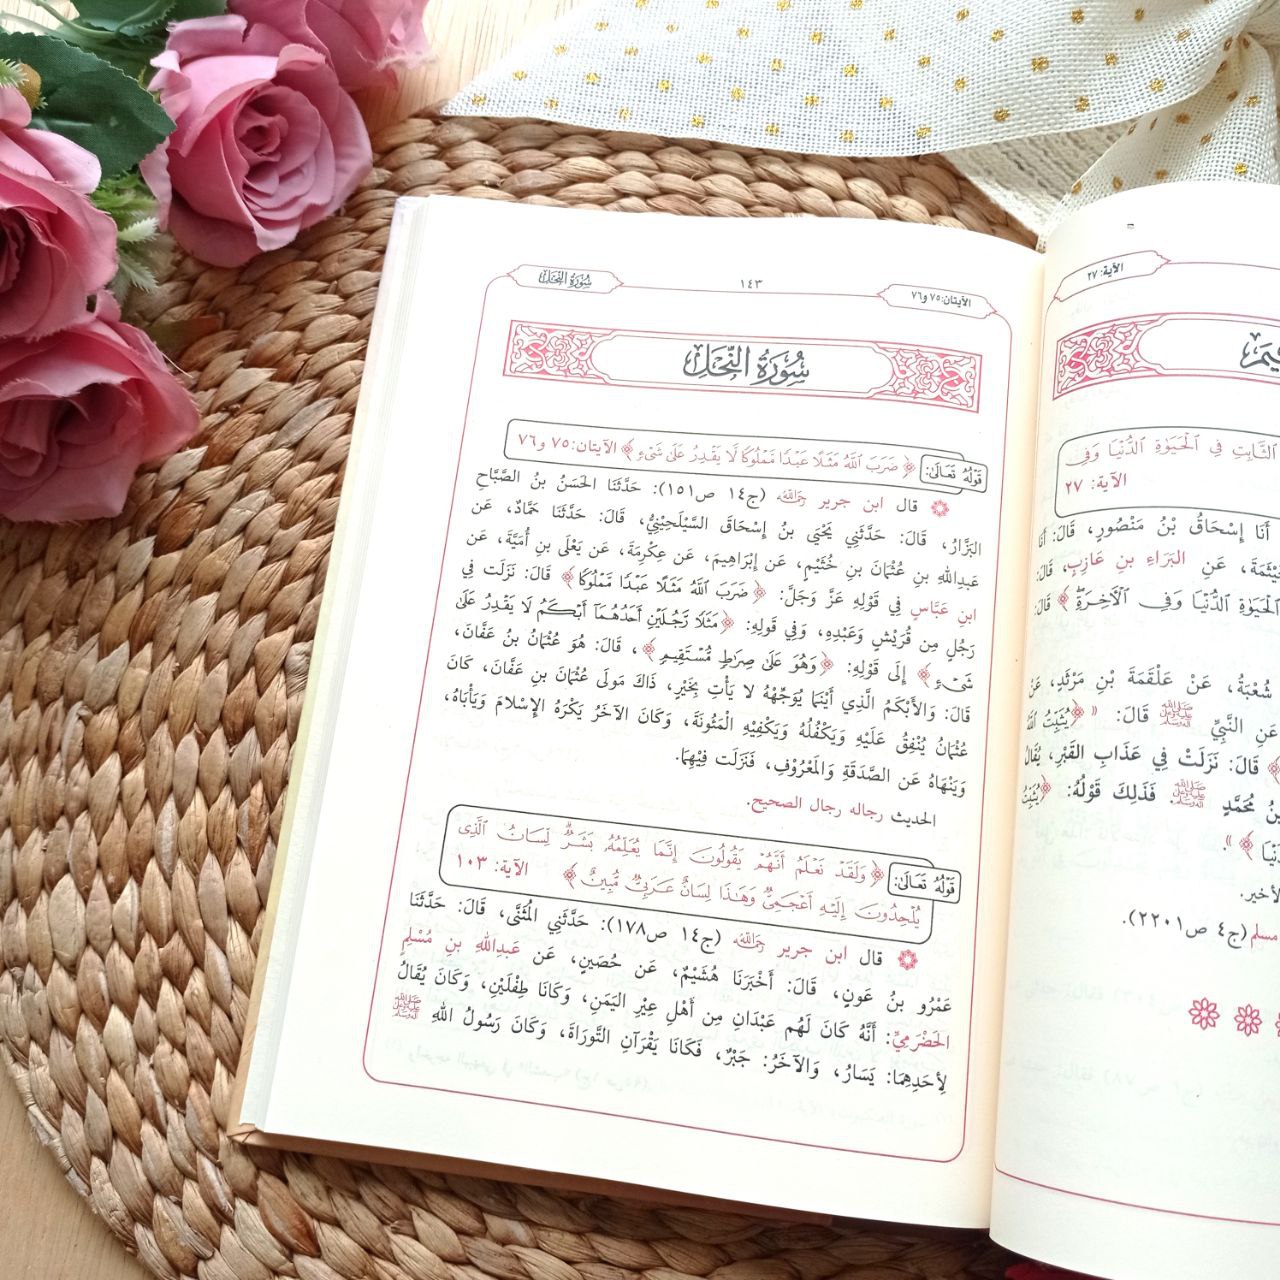 الآية: ٢٧
الثَّابِتِ فِي الْحَيَوٰةِ الدُّنْيَا وَفِي
الآية: ٢٧
أَنَا إِسْحَاقُ بْنُ مَنْصُورٍ، قَالَ: أَنَا
عَنِ البَرَاءِ بنِ عَازِبٍ، قَالَ:
الْحَيَوٰةِ الدُّنْيَا وَفِي الْآخِرَةِ ﴾ قَالَ:
شُعْبَةُ، عَنْ عَلْقَمَةَ بْنِ مَرْثَدٍ، عَنْ
عَنِ النَّبِيِّ ﷺ قَالَ: « ﴿ يُثَبِّتُ اللَّهُ
﴾ قَالَ: نَزَلَتْ فِي عَذَابِ القَبْرِ، يُقَالُ
مُحَمَّدٍ ﷺ. فَذَلِكَ قَوْلُهُ: ﴿ يُثَبِّتُ
مسلم (ج٤ ص٢٢٠١).
سُورَةُ النَّحْلِ
١٤٣
الآيتان: ٧٥ و٧٦
سُورَةُ النَّحْلِ
قَوْلُهُ تَعَالَى: ﴿ ضَرَبَ اللَّهُ مَثَلًا عَبْدًا مَّمْلُوكًا لَّا يَقْدِرُ عَلَىٰ شَيْءٍ ﴾ الآيتان: ٧٥ و٧٦
قال ابن جرير رَحِمَهُ اللَّهُ (ج١٤ ص١٥١): حَدَّثَنَا الحَسَنُ بنُ الصَّبَّاحِ
البَزَّارُ، قَالَ: حَدَّثَنِي يَحْيَى بنُ إِسْحَاقَ السَّيْلَحِينِيُّ، قَالَ: حَدَّثَنَا حَمَّادٌ، عَن
عَبدِاللهِ بنِ عُثْمَانَ بنِ خُثَيْمٍ، عَن إِبْرَاهِيمَ، عَن عِكْرِمَةَ، عَن يَعْلَى بنِ أُمَيَّةَ، عَن
ابنِ عَبَّاسٍ فِي قَوْلِهِ عَزَّ وَجَلَّ: ﴿ ضَرَبَ اللَّهُ مَثَلًا عَبْدًا مَّمْلُوكًا ﴾ قَالَ: نَزَلَت فِي
رَجُلٍ مِن قُرَيْشٍ وَعَبْدِهِ، وَفِي قَولِهِ: ﴿ مَثَلًا رَّجُلَيْنِ أَحَدُهُمَآ أَبْكَمُ لَا يَقْدِرُ عَلَىٰ
شَيْءٍ ﴾ إِلَى قَوْلِهِ: ﴿ وَهُوَ عَلَىٰ صِرَاطٍ مُّسْتَقِيمٍ ﴾، قَالَ: هُوَ عُثْمَانُ بنُ عَفَّانَ،
قَالَ: وَالأَبْكَمُ الَّذِي أَيْنَمَا يُوَجِّهْهُ لا يَأْتِ بِخَيْرٍ، ذَاكَ مَولَى عُثْمَانَ بنِ عَفَّانَ، كَانَ
عُثْمَانُ يُنْفِقُ عَلَيْهِ وَيَكْفُلُهُ وَيَكْفِيهِ الْمَئُونَةَ، وَكَانَ الآخَرُ يَكْرَهُ الإِسْلامَ وَيَأْبَاهُ،
وَيَنْهَاهُ عَن الصَّدَقَةِ وَالمَعْرُوفِ، فَنَزَلَت فِيْهِمَا.
الحديث رجاله رجال الصحيح.
قَوْلُهُ تَعَالَى: ﴿ وَلَقَدْ نَعْلَمُ أَنَّهُمْ يَقُولُونَ إِنَّمَا يُعَلِّمُهُۥ بَشَرٌ لِّسَانُ الَّذِي
يُلْحِدُونَ إِلَيْهِ أَعْجَمِيٌّ وَهَٰذَا لِسَانٌ عَرَبِيٌّ مُّبِينٌ ﴾ الآية: ١٠٣
قال ابن جرير رَحِمَهُ اللَّهُ (ج١٤ ص١٧٨): حَدَّثَنِي المُثَنَّى، قَالَ: حَدَّثَنَا
عَمْرُو بنُ عَونٍ، قَالَ: أَخْبَرَنَا هُشَيْمٌ، عَن حُصَينٍ، عَن عَبدِاللهِ بنِ مُسْلِمٍ
الحَضْرَمِيِّ: أَنَّهُ كَانَ لَهُم عَبْدَانِ مِن أَهْلِ عِيْرِ اليَمَنِ، وَكَانَا طِفْلَيْنِ، وَكَانَ يُقَالُ
لِأَحَدِهِمَا: يَسَارُ، وَالآخَرُ: جَبْرٌ، فَكَانَا يَقْرَآنِ التَّورَاةَ، وَكَانَ رَسُولُ اللهِ ﷺ